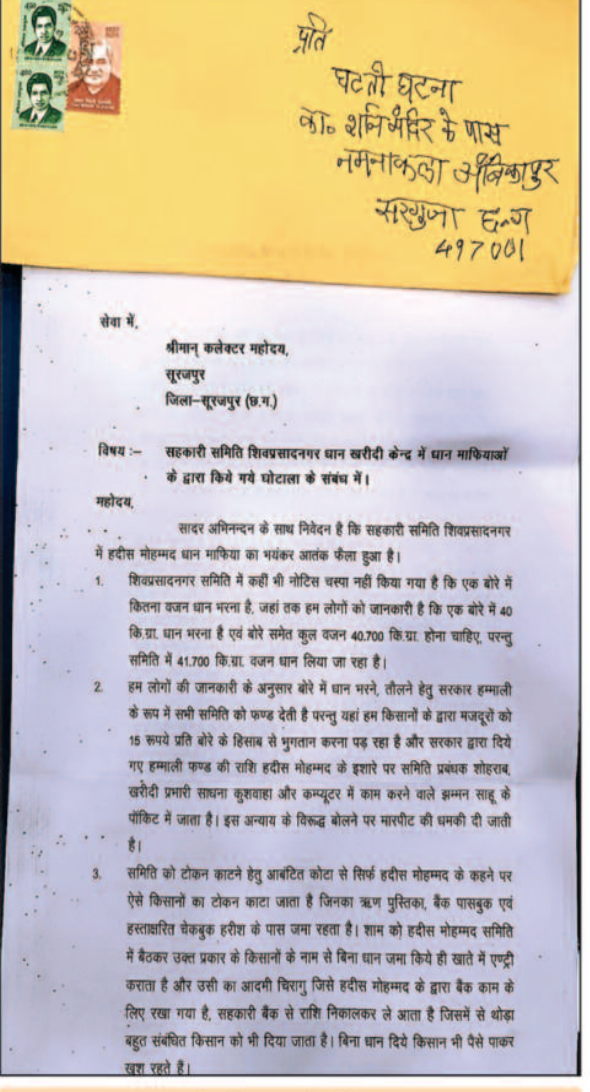 प्रति
घटती घटना
का० शनि मंदिर के पास
नमनाकला अंबिकापुर
सरगुजा छ०ग
497001
सेवा में,
श्रीमान् कलेक्टर महोदय,
सूरजपुर
जिला–सूरजपुर (छ.ग.)
विषय :– सहकारी समिति शिवप्रसादनगर धान खरीदी केन्द्र में धान माफियाओं
के द्वारा किये गये घोटाला के संबंध में।
महोदय,
सादर अभिनन्दन के साथ निवेदन है कि सहकारी समिति शिवप्रसादनगर
में हदीस मोहम्मद धान माफिया का भयंकर आतंक फैला हुआ है।
1. शिवप्रसादनगर समिति में कहीं भी नोटिस चस्पा नहीं किया गया है कि एक बोरे में
कितना वजन धान भरना है, जहां तक हम लोगों को जानकारी है कि एक बोरे में 40
कि.ग्रा. धान भरना है एवं बोरे समेत कुल वजन 40.700 कि.ग्रा. होना चाहिए, परन्तु
समिति में 41.700 कि.ग्रा. वजन धान लिया जा रहा है।
2. हम लोगों की जानकारी के अनुसार बोरे में धान भरने, तौलने हेतु सरकार हम्माली
के रूप में सभी समिति को फण्ड देती है परन्तु यहां हम किसानों के द्वारा मजदूरों को
15 रूपये प्रति बोरे के हिसाब से भुगतान करना पड़ रहा है और सरकार द्वारा दिये
गए हम्माली फण्ड की राशि हदीस मोहम्मद के इशारे पर समिति प्रबंधक शोहराब,
खरीदी प्रभारी साधना कुशवाहा और कम्प्यूटर में काम करने वाले झम्मन साहू के
पॉकिट में जाता है। इस अन्याय के विरूद्ध बोलने पर मारपीट की धमकी दी जाती
है।
3. समिति को टोकन काटने हेतु आबंटित कोटा से सिर्फ हदीस मोहम्मद के कहने पर
ऐसे किसानों का टोकन काटा जाता है जिनका ऋण पुस्तिका, बैंक पासबुक एवं
हस्ताक्षरित चेकबुक हरीश के पास जमा रहता है। शाम को हदीस मोहम्मद समिति
में बैठकर उक्त प्रकार के किसानों के नाम से बिना धान जमा किये ही खाते में एण्ट्री
कराता है और उसी का आदमी चिरागु जिसे हदीस मोहम्मद के द्वारा बैंक काम के
लिए रखा गया है, सहकारी बैंक से राशि निकालकर ले आता है जिसमें से थोड़ा
बहुत संबंधित किसान को भी दिया जाता है। बिना धान दिये किसान भी पैसे पाकर
खुश रहते हैं।